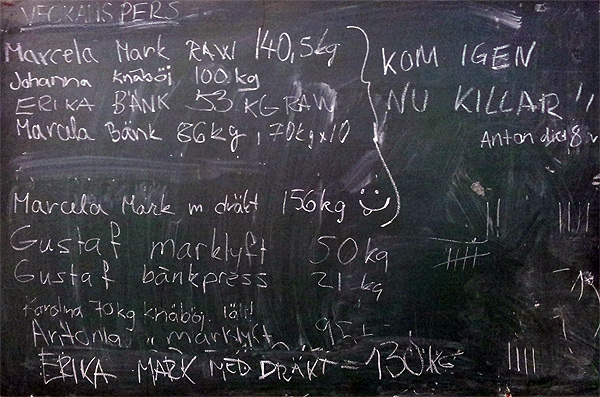 VECKANS PERS
Marcela Mark RAW 140,5kg
Johanna Knäböj 100kg
ERIKA BÄNK 53 KG RAW
Marcela Bänk 86kg, 70kg x 10
KOM IGEN
NU KILLAR!!
Anton died 8 v
Marcela Mark m dräkt 156kg
Gustaf marklyft 50 kg
Gustaf bänkpress 21 kg
Karolina 70kg knäböj
Antonia marklyft 95
ERIKA MARK MED DRÄKT - 130 KG